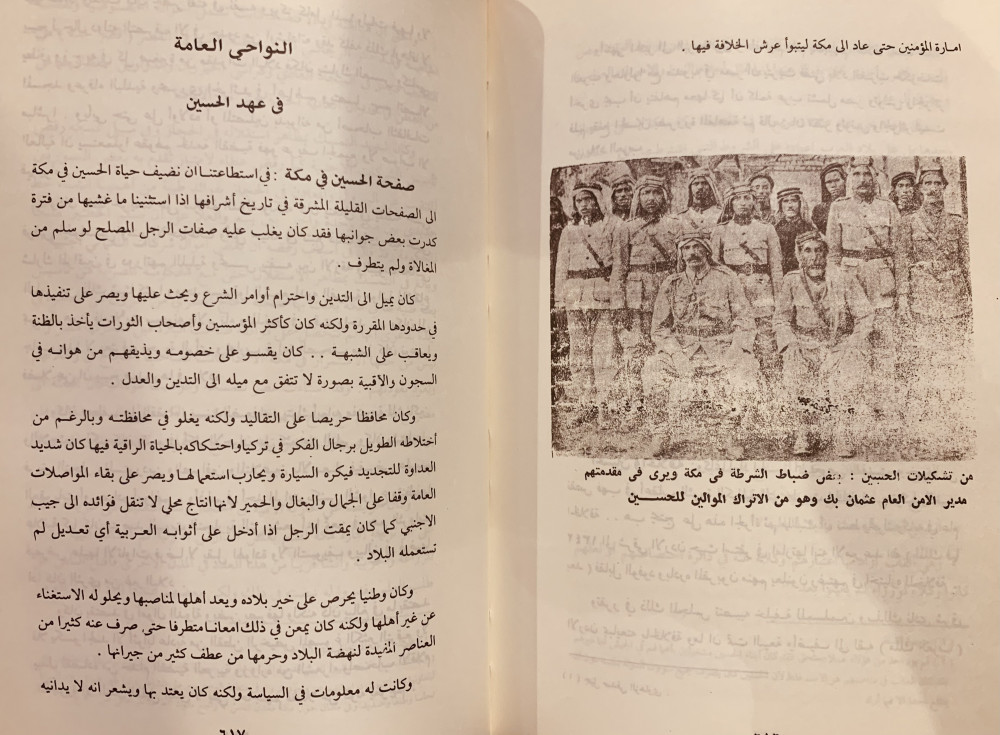 امارة المؤمنين حتى عاد الى مكة ليتبوأ عرش الخلافة فيها .
من تشكيلات الحسين : بعض ضباط الشرطة فى مكة ويرى فى مقدمتهم
مدير الامن العام عثمان بك وهو من الاتراك الموالين للحســـين
النواحي العامة
فى عهد الحسين
صفحة الحسين في مكة : في استطاعتنا ان نضيف حياة الحسين في مكة
الى الصفحات القليلة المشرقة في تاريخ أشرافها اذا استثنينا ما غشيها من فترة
كدرت بعض جوانبها فقد كان يغلب عليه صفات الرجل المصلح لو سلم من
المغالاة ولم يتطرف .
كان يميل الى التدين واحترام أوامر الشرع ويحث عليها ويصر على تنفيذها
في حدودها المقررة ولكنه كان كأكثر المؤسسين وأصحاب الثورات يأخذ بالظنة
ويعاقب على الشبهة . . كان يقسو على خصومه ويذيقهم من هوانه في
السجون والاقبية بصورة لا تتفق مع ميله الى التدين والعدل .
وكان محافظا حريصا على التقاليد ولكنه يغلو في محافظته وبالرغم من
أختلاطه الطويل برجال الفكر في تركيا واحتكاكه بالحياة الراقية فيها كان شديد
العداوة للتجديد فيكره السيارة ويحارب استعمالها ويصر على بقاء المواصلات
العامة وقفا على الجمال والبغال والحمير لانها انتاج محلي لا تنقل فوائده الى جيب
الاجنبي كما كان يمقت الرجل اذا أدخل على أثوابه العربية أي تعديل لم
تستعمله البلاد .
وكان وطنيا يحرص على خير بلاده ويعد أهلها لمناصبها ويحلو له الاستغناء
عن غير أهلها ولكنه كان يمعن في ذلك امعانا متطرفا حتى صرف عنه كثيرا من
العناصر المفيدة لنهضة البلاد وحرمها من عطف كثير من جيرانها .
وكانت له معلومات في السياسة ولكنه كان يعتد بها ويشعر انه لا يدانيه
٦١٧